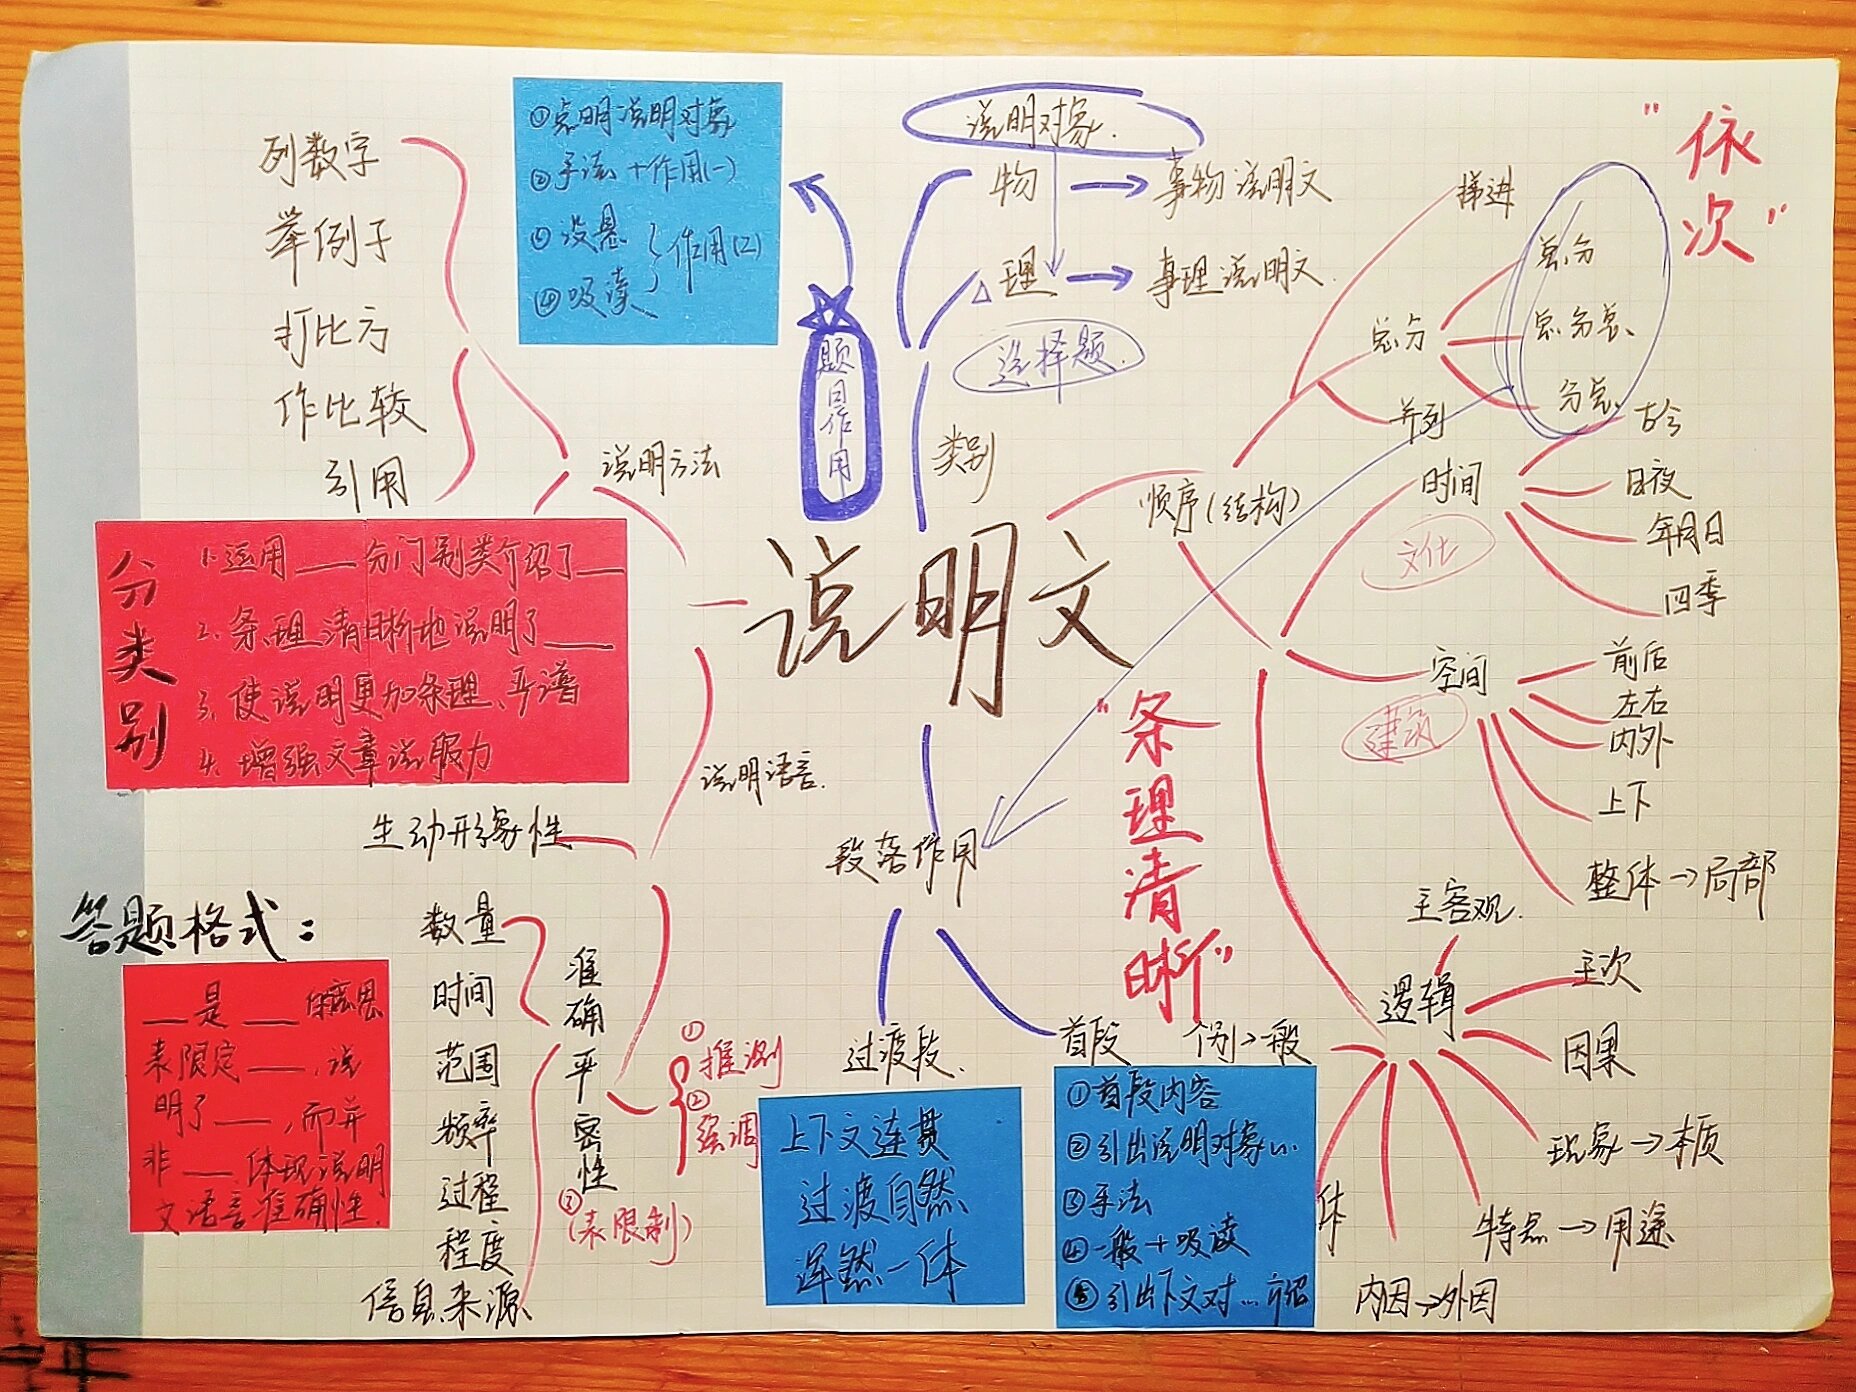 说明文
说明对象
物
事物说明文
理
事理说明文
选择题
类别
题目作用
①点明说明对象
②手法+作用(一)
③设悬
作用(二)
④吸读
说明方法
列数字
举例子
打比方
作比较
引用
分类别
1.运用___分门别类介绍了___
2.条理清晰地说明了___
3.使说明更加条理、严谨
4.增强文章说服力
说明语言
生动形象性
准确严密性
数量
时间
范围
频率
过程
程度
信息来源
①推测
②强调
③(表限制)
答题格式:
___是___的意思
表限定___,说
明了___,而并
非___.体现说明
文语言准确性.
段落作用
过渡段
上下文连贯
过渡自然
浑然一体
首段
①首段内容
②引出说明对象
③手法
④一般+吸读
⑤引出下文对…介绍
"条理清晰"
顺序(结构)
递进
总分
总分
总分总
分总
并列
"依次"
时间
文化
古今
日夜
年月日
四季
空间
建筑
前后
左右
内外
上下
整体→局部
逻辑
主客观
主次
因果
现象→本质
特点→用途
内因→外因
体
个别→一般